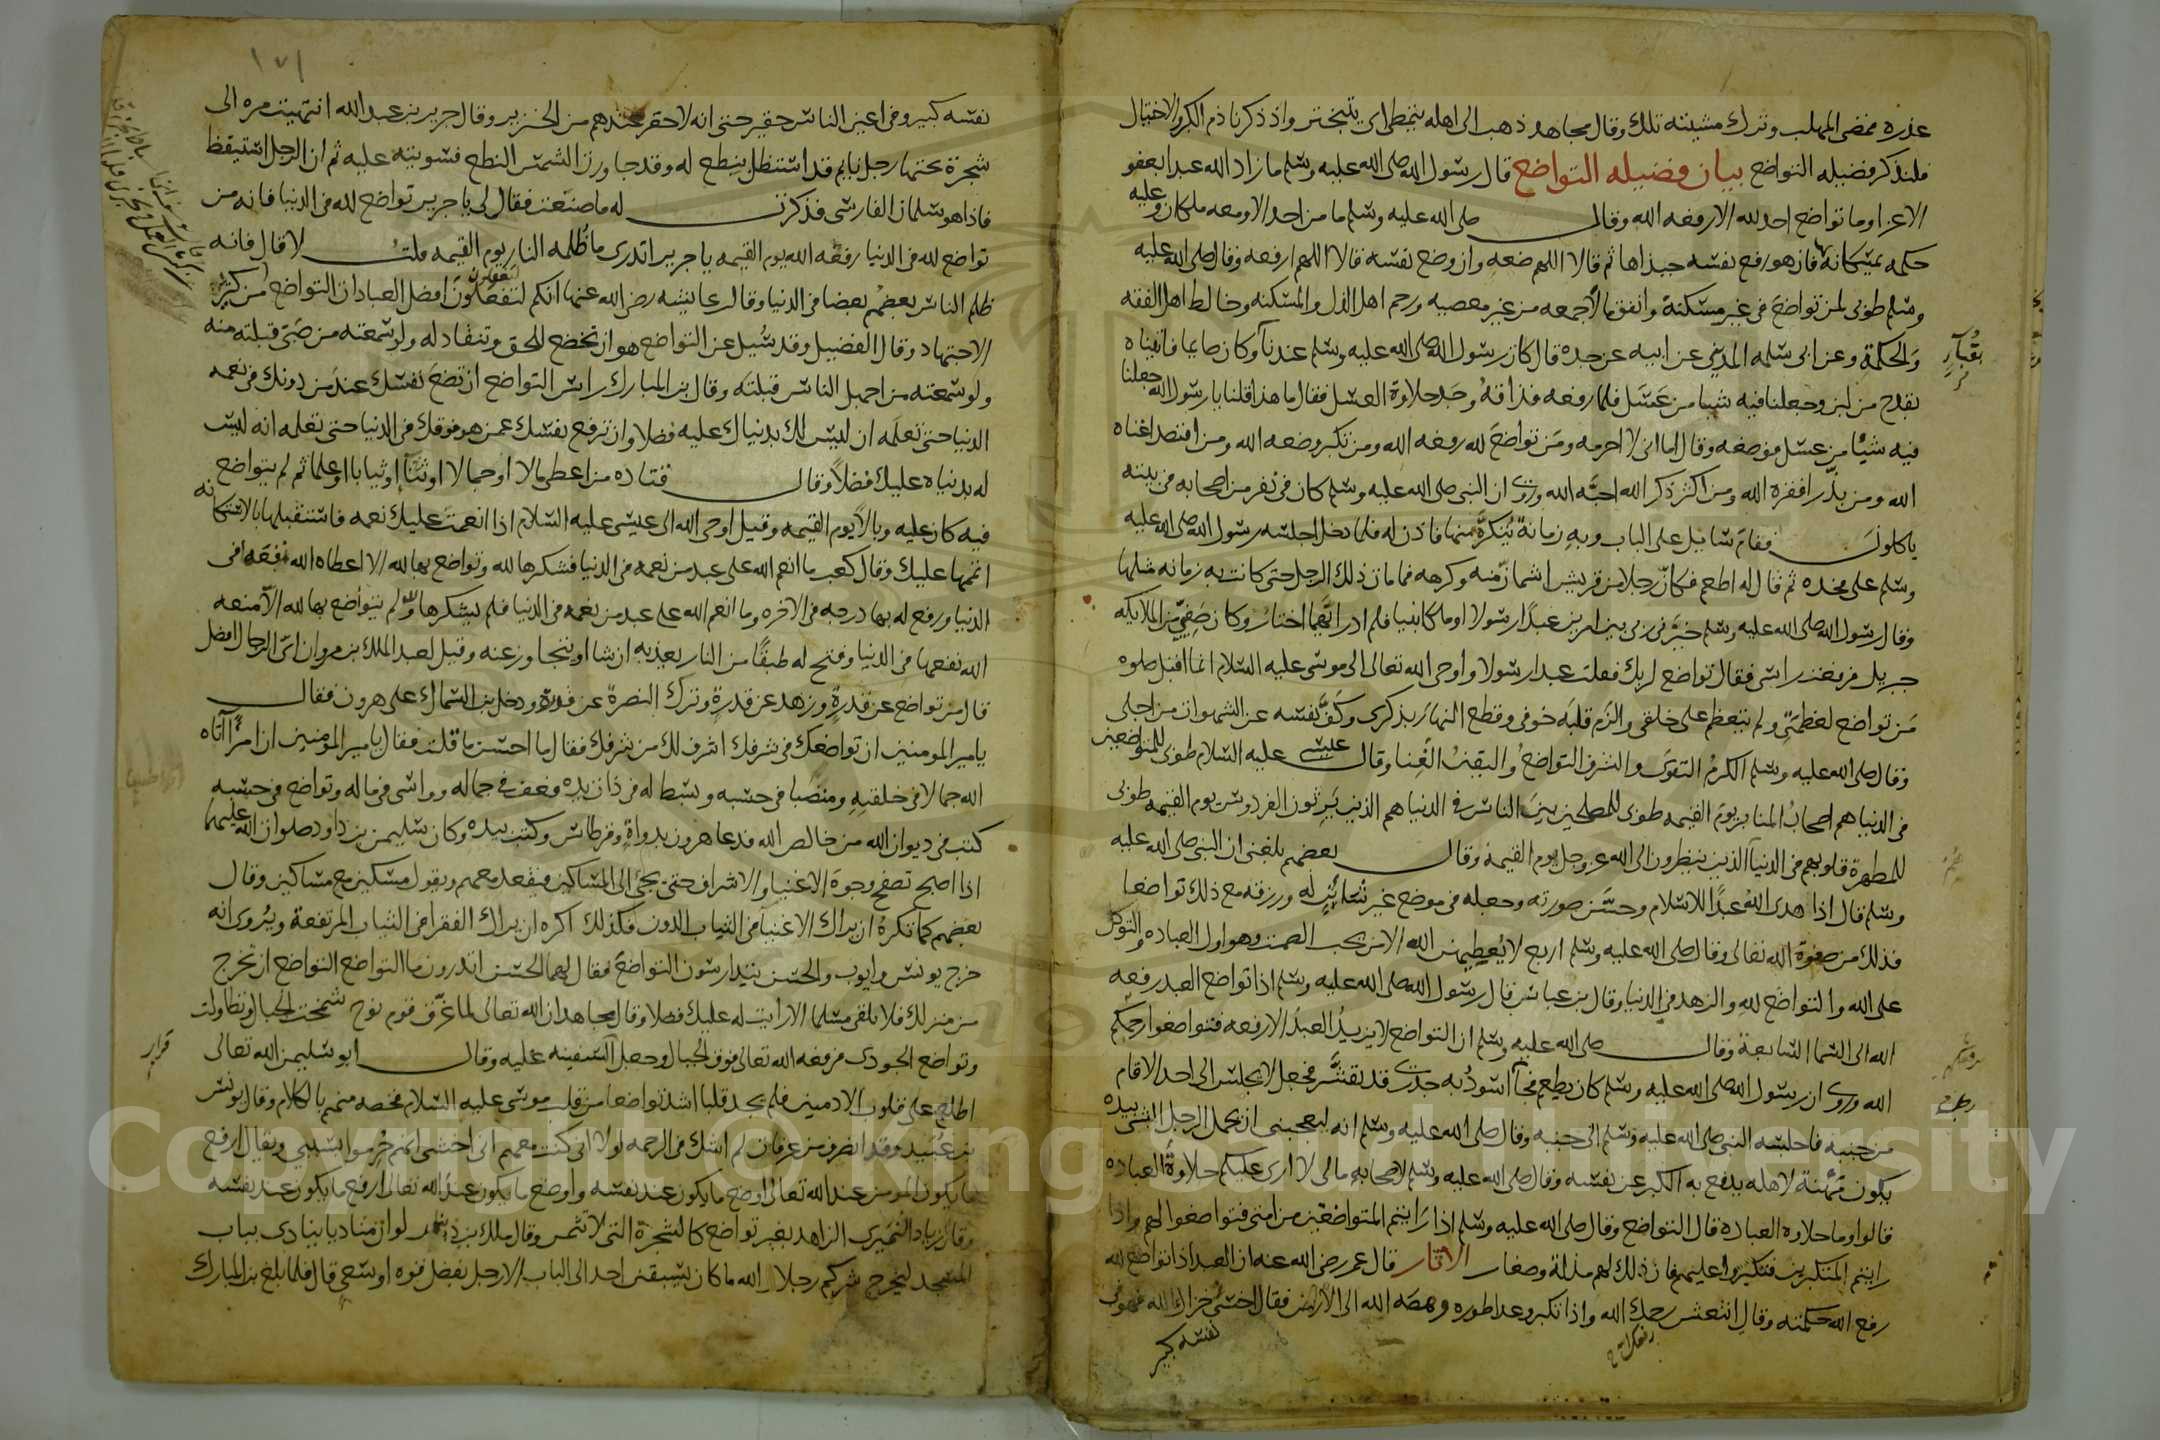 عذره فمضى المهلب وترك مشيته تلك وقال مجاهد ذهب الى اهله يتمطى اي يتبختر واذ ذكرنا ذم الكبر والاختيال
فلنذكر فضيله التواضع بيان فضيله التواضع قال رسول الله صلى الله عليه وسلم ما زاد الله عبدا بعفو
الا عزا وما تواضع احد لله الا رفعه الله وقال صلى الله عليه وسلم ما من احد الا ومعه ملكان وعليه
حكمه يمسكانه بها فان هو رفع نفسه جبذاها ثم قالا اللهم ضعه وان وضع نفسه قالا اللهم ارفعه وقال صلى الله عليه
وسلم طوبى لمن تواضع في غير مسكنة وانفق مالا جمعه من غير معصيه ورحم اهل الذل والمسكنه وخالط اهل الفقه
والحكمة وعن ابي سلمه المديني عن ابيه عن جده قال كان رسول الله صلى الله عليه وسلم عندنا وكان صايما فاتيناه
بقدح من لبن وجعلنا فيه شيا من عسل فلما رفعه فذاقه وجد حلاوة العسل فقال ما هذا قلنا يا رسول الله جعلنا
فيه شيا من عسل فوضعه وقال اما اني لا احرمه ومن تواضع لله رفعه الله ومن تكبر وضعه الله ومن اقتصد اغناه
الله ومن بذر افقره الله ومن اكثر ذكر الله احبه الله وروي ان النبي صلى الله عليه وسلم كان في نفر من اصحابه في بيته
ياكلون فقام سايل على الباب وبه زمانة يتكره منها فاذن له فلما دخل اجلسه رسول الله صلى الله عليه
وسلم على فخذه ثم قال له اطعم فكان رجلا من قريش اشمأز منه وكرهه فما مات ذلك الرجل حتى كانت به زمانه مثلها
وقال رسول الله صلى الله عليه وسلم خيرني ربي بين امرين عبدا رسولا او ملكا نبيا فلم ادر ايهما اختار وكان صفيي من الملايكه
جبريل فرفعت راسي فقال تواضع لربك فقلت عبدا رسولا واوحى الله تعالى الى موسى عليه السلام انما اقبل صلوه
من تواضع لعظمتي ولم يتعظم على خلقي والزم قلبه خوفي وقطع النهار بذكري وكف نفسه عن الشهوات من اجلي
وقال صلى الله عليه وسلم الكرم التقوى والشرف التواضع واليقين الغنا وقال عيسى عليه السلام طوبى للمتواضعين
في الدنيا هم اصحاب المنابر يوم القيمه طوبى للمصلحين بين الناس في الدنيا هم الذين يرثون الفردوس يوم القيمه طوبى
للمطهرة قلوبهم في الدنيا الذين ينظرون الى الله عز وجل يوم القيمة وقال بعضهم بلغني ان النبي صلى الله عليه
وسلم قال اذا هدى الله عبدا للاسلام وحسن صورته وجعله في موضع غير شاين له ورزقه مع ذلك تواضعا
فذلك من صفوة الله تعالى وقال صلى الله عليه وسلم اربع لا يعطيهن الله الا من يحب الصمت وهو اول العباده والتوكل
على الله والتواضع لله والزهد في الدنيا وقال بن عباس قال رسول الله صلى الله عليه وسلم اذا تواضع العبد رفعه
الله الى السما السابعة وقال صلى الله عليه وسلم ان التواضع لا يزيد العبد الا رفعه فتواضعوا رحمكم
الله وروي ان رسول الله صلى الله عليه وسلم كان يطعم فجا اسود به جدري قد تقشر فجعل لا يجلس الى احد الا قام
من جنبه فاجلسه النبي صلى الله عليه وسلم الى جنبه وقال صلى الله عليه وسلم انه ليعجبني ان يحمل الرجل الشي بيده
يكون مهنة لاهله يدفع به الكبر عن نفسه وقال صلى الله عليه وسلم لاصحابه مالي لا ارى عليكم حلاوة العباده
قالوا وما حلاوه العباده قال التواضع وقال صلى الله عليه وسلم اذا رايتم المتواضعين من امتي فتواضعوا لهم واذا
رايتم المتكبرين فتكبروا عليهم فان ذلك لهم مذلة وصغار الاثار قال عمر رضي الله عنه ان العبد اذا تواضع لله
رفع الله حكمته وقال انتعش رحمك الله واذا تكبر وعدا طوره وهصه الله الى الارض فقال اخسئ خزاك الله فهو في
نفسه كبير
رفعك الله
١٧١
نفسه كبير وفي اعين الناس حقير حتى انه لاحقر عندهم من الخنزير وقال جرير بن عبد الله انتهيت مره الى
شجرة تحتها رجل نايم قد استظل بنطع له وقد جاوزت الشمس النطع فسويته عليه ثم ان الرجل استيقظ
فاذا هو سلمان الفارسي فذكرت له ما صنعت فقال لي يا جرير تواضع لله في الدنيا فانه من
تواضع لله في الدنيا رفعه الله يوم القيمه يا جرير اتدري ما ظلمه النار يوم القيمه قلت لا قال فانه
ظلم الناس بعضهم بعضا في الدنيا وقالت عايشه رضي الله عنها انكم لتغفلون افضل العبادات التواضع
الاجتهاد وقال الفضيل وقد سئل عن التواضع هو ان تخضع للحق وتنقاد له ولو سمعته من صبي قبلته منه
ولو سمعته من اجهل الناس قبلته وقال بن المبارك راس التواضع ان تضع نفسك عند من دونك في نعمه
الدنيا حتى تعلمه ان ليس لك بدنياك عليه فضلا وان ترفع نفسك عمن هو فوقك في الدنيا حتى تعلمه انه ليس
له بدنياه عليك فضلا وقال قتاده من اعطي مالا او جمالا او ثيابا او علما ثم لم يتواضع
فيه كان عليه وبالا يوم القيمه وقيل اوحى الله الى عيسى عليه السلام اذا انعمت عليك نعمه فاستقبلها بالاستكانه
اتممها عليك وقال كعب ما انعم الله على عبد من نعمه في الدنيا فشكرها لله وتواضع بها لله الا اعطاه الله نفعها في
الدنيا ورفع له بها درجه في الاخره وما انعم الله على عبد من نعمه في الدنيا فلم يشكرها ولم يتواضع بها لله الا منعه
الله نفعها في الدنيا وفتح له طبقا من النار يعذبه ان شا او يتجاوز عنه وقيل لعبد الملك بن مروان اي الرجال افضل
قال من تواضع عن قدرة وزهد عن قدرة وترك النصرة عن قدرة ودخل بن السماك على هرون فقال
يا مير المومنين ان تواضعك في شرفك اشرف لك من شرفك فقال ما احسن ما قلت فقال يا مير المومنين ان امرأ اتاه
الله جمالا في خلقته ومنصبا في حسبه وبسط له في ذات يده فعف في جماله وواسى في ماله وتواضع في حسبه
كتب في ديوان الله من خالص الله فدعا هرون بدواة وقرطاس وكتب بيده وكان سليمن بن داود صلوات الله عليهما
اذا اصبح تصفح وجوه الاغنيا والاشراف حتى يجي الى المساكين فيقعد معهم ويقول مسكين مع مساكين وقال
بعضهم كما تكره ان يراك الاغنيا في الثياب الدون فكذلك اكره ان يراك الفقرا في الثياب المرتفعة ويروى انه
خرج يونس وايوب والحسن يتدارسون التواضع فقال لهما الحسن اتدرون ما التواضع التواضع ان تخرج
من منزلك فلا تلقى مسلما الا رايت له عليك فضلا وقال مجاهد ان الله تعالى لما غرق قوم نوح شمخت الجبال وتطاولت
وتواضع الجودي فرفعه الله تعالى فوق الجبال وجعل السفينه عليه وقال ابو سليمن ان الله تعالى
اطلع على قلوب الادميين فلم يجد قلبا اشد تواضعا من قلب موسى عليه السلام فخصه منهم بالكلام وقال يونس
بن عبيد وقد انصرف من عرفات لم اشك في الرحمه لولا اني كنت معهم اني اخشى انهم حرموا بسببي ويقال ارفع
ما يكون المومن عند الله تعالى اوضع ما يكون عند نفسه واوضع ما يكون عند الله تعالى ارفع ما يكون عند نفسه
وقال زياد النميري الزاهد بغير تواضع كالشجرة التي لا تثمر وقال ملك بن دينار لو ان مناديا ينادي بباب
المسجد ليخرج شركم رجلا والله ما كان يسبقني احد الى الباب الا رجل بفضل قوه او سعي قال فلما بلغ بن المبارك
Copyright © King Saud University